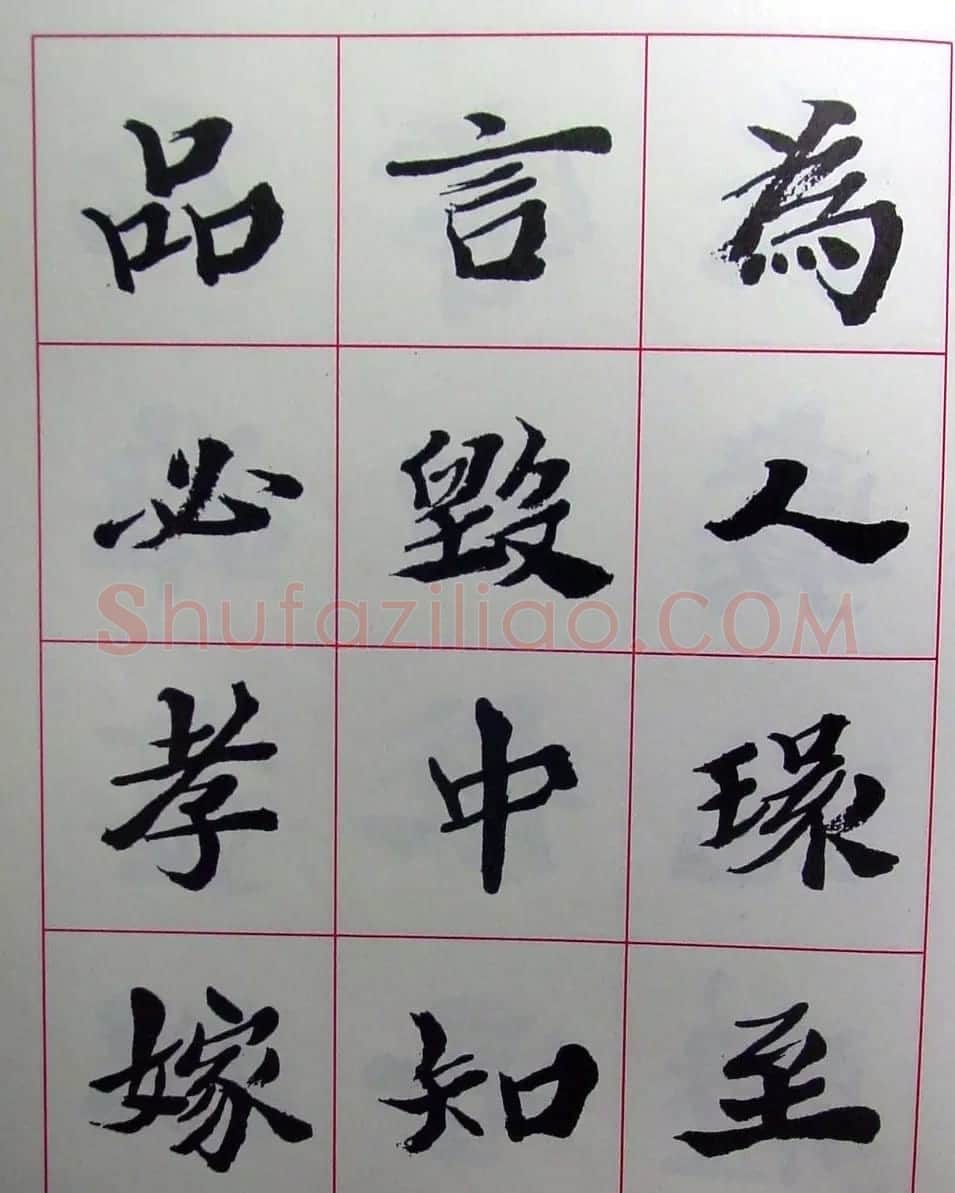 為人環至
言毀中知
品必孝嫁
Shufaziliao.COM